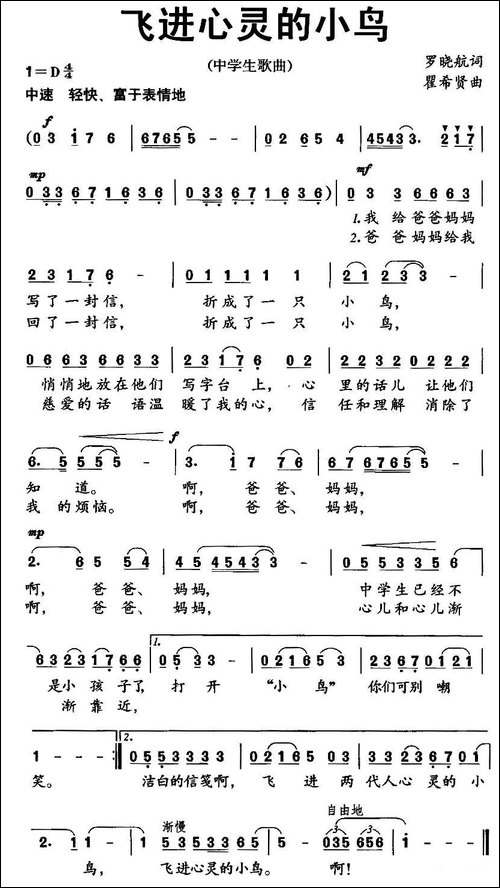 飞进心灵的小鸟
(中学生歌曲)
罗晓航词
瞿希贤曲
1=D 4/4
中速 轻快、富于表情地
f
(0 3 1 7 6 | 67655 - - | 0 2 7 6 5 | 45433. 217 |
mp mf
0 33 671636 | 0 33 671636) | 03 3 6663 |
1.我 给爸爸妈妈
2.爸 爸妈妈给我
2 3 1 7 6 - | 0 1 1 1 1 1 | 2 1 2 3 3 - |
写了一封信, 折成了一只 小 鸟,
回了一封信, 折成了一只 小 鸟,
0 6 6 3 6 6 3 3 | 2 3 1 7 6 0 2 | 2 3 2 2 0 3 2 2 |
悄悄地放在他们 写字台 上,心 里的话儿 让他们
慈爱的话 语温 暖了我的心,信 任和理解 消除了
f
6. 5 5 5 5 - | 3. 1 7 7 6 | 6 7 6 7 6 5 5 - |
知 道。 啊, 爸爸、 妈妈,
我 的烦恼。 啊, 爸爸、 妈妈,
mp
2. 6 5 5 4 | 4 5 4 5 4 3 3 - | 0 5 5 3 3 5 6 |
啊, 爸爸、 妈妈, 中学生已经不
啊, 爸爸、 妈妈, 心儿和心儿渐
1.
6 3 2 3 1 7 6 6 | 0 5 3 3 | 0 2 1 6 5 - | 2 3 6 7 0 1 2 1 |
是小孩子了, 打开 “小鸟” 你们可别嘲
渐靠近,
2.
1 - - - :‖ 0 5 5 3 3 3 3 | 0 2 1 6 5 0 3 | 3 2 2 3 6 7 0 1 |
笑。 洁白的信笺啊, 飞 进 两代人心灵的小
渐慢 自由地
2. 1 | 1 - - 1 | 5 3 5 3 3 5 1 6 | 5 - 035 656 | 1 - - - ‖
鸟, 飞进心灵的小鸟。 啊!